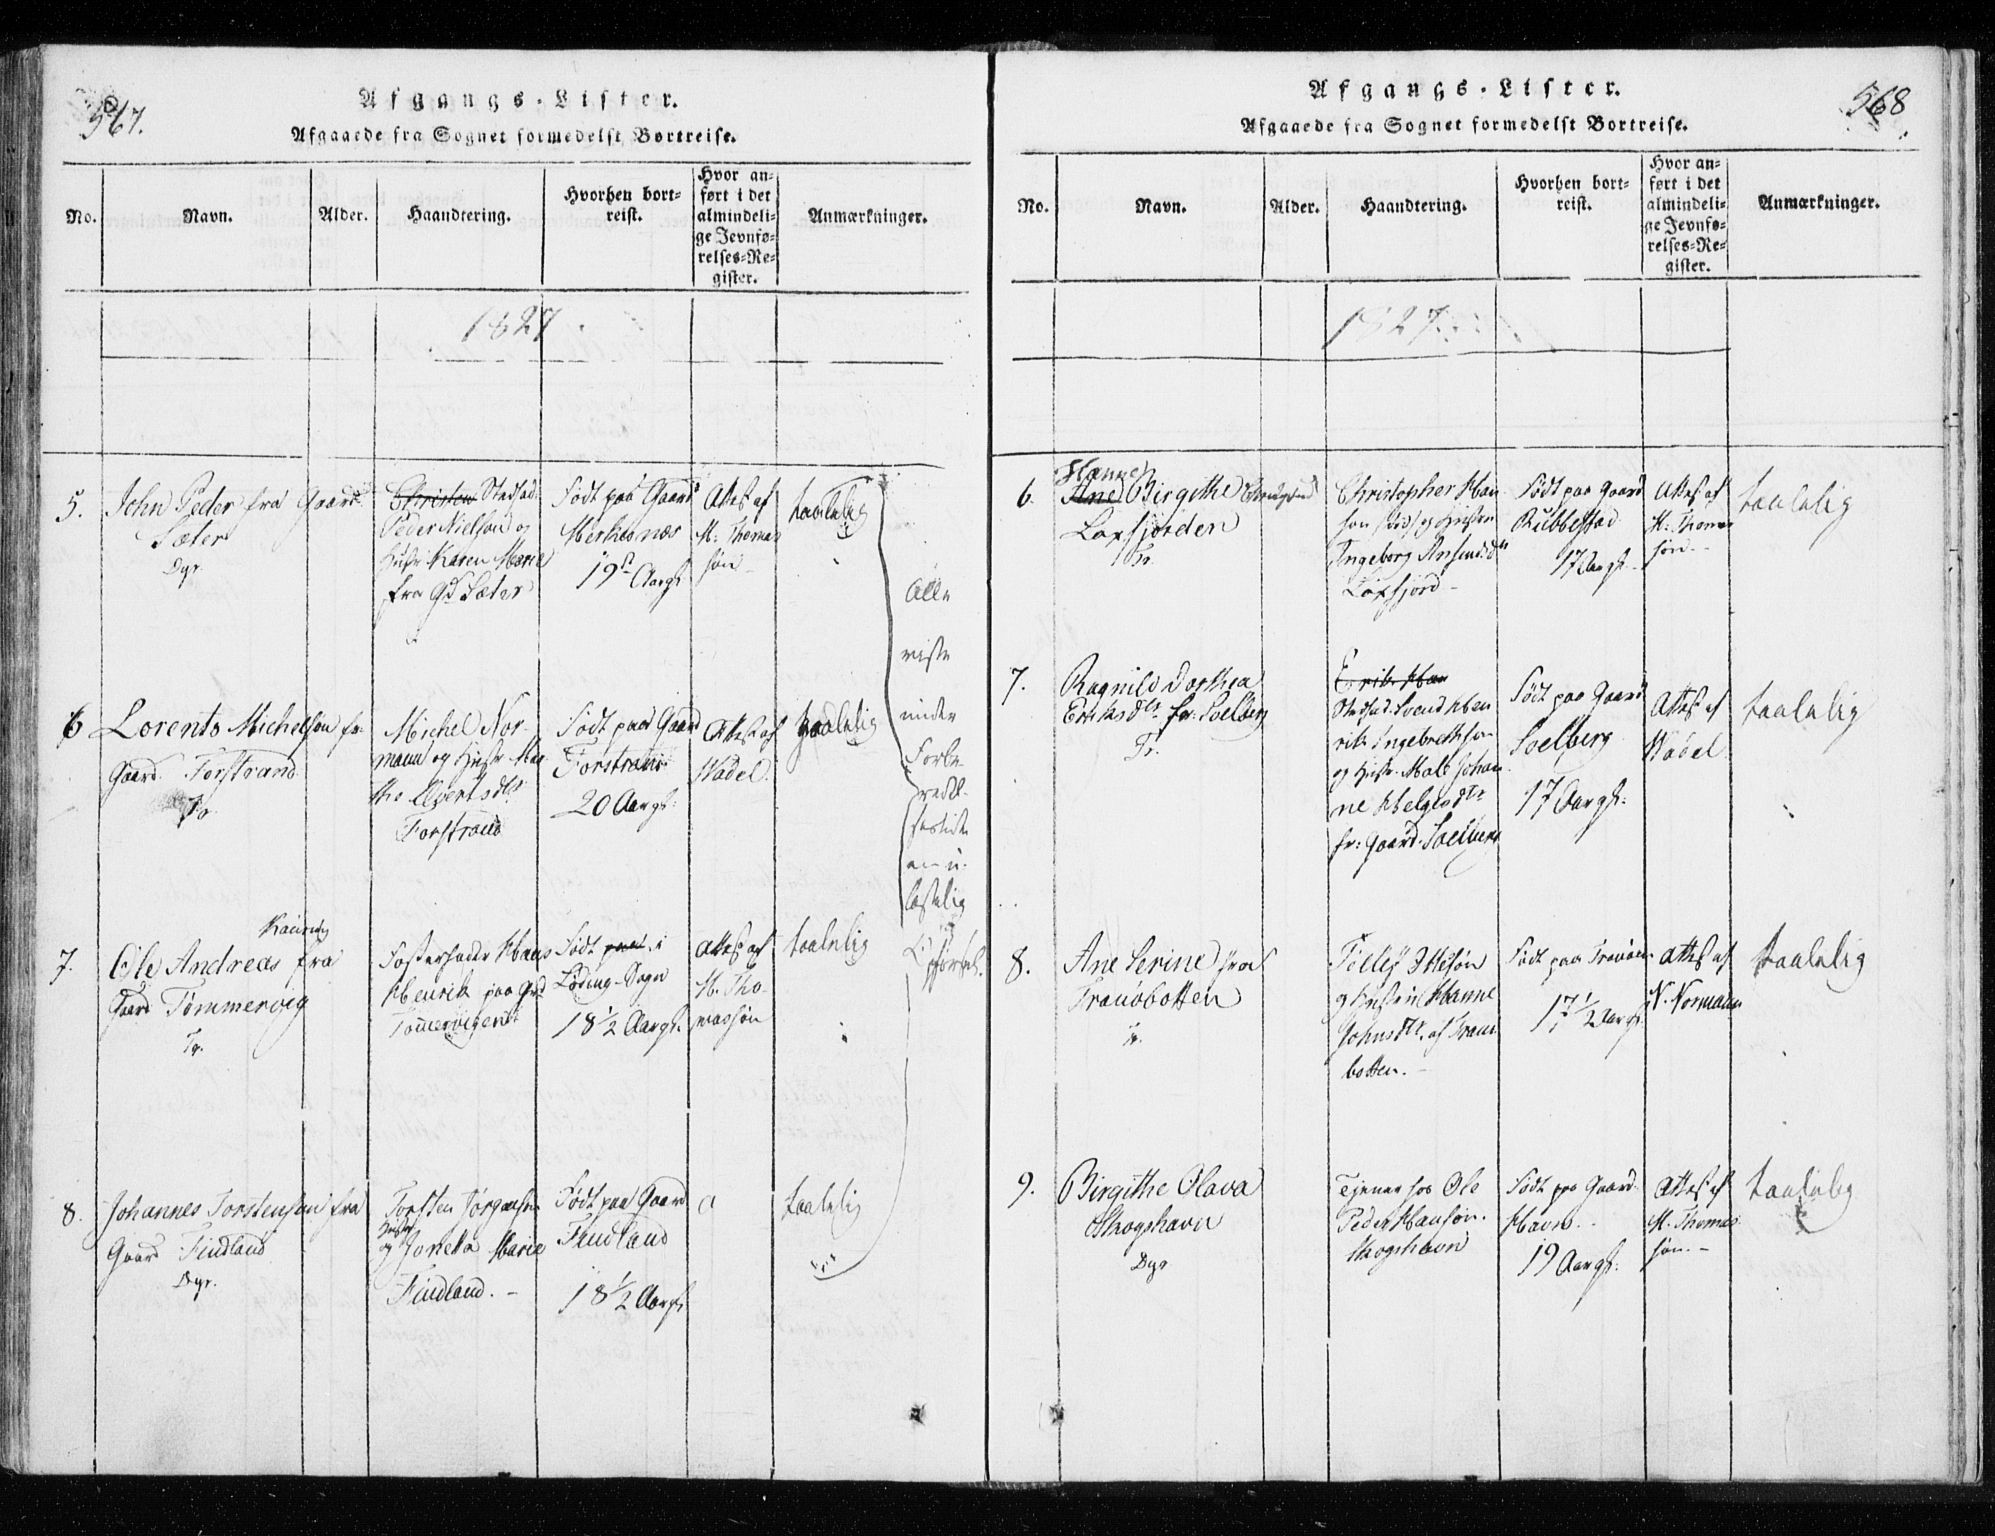 567.
Afgangs-Lister.
Afgaaede fra Sognet formedelst Bortreise.
No.
Navn.
Alder.
Haandtering.
Hvorhen bort-
reist.
Hvor an-
ført i det
almindeli-
ge Jevnfø-
relses-Re-
gister.
Anmærkninger.
1827
5.
John Peder fra Gaard
Sæter
Dgr
Christen Stedfad:
Peder Nielson og
Karen Marie
fra Gd Sæter
Født paa Gaard
Merkesnæs
19 Aargl
Attest af
M: Thomas
søn
taalelig
6
Lorents Michelson fr:
Gaard Forstrand
Michel Nor-
mann og Hustr Mar-
the Elvertsdtr
Forstrand
Født paa Gaard
Forstrand
20 Aargl:
Attest af
Wadel.
taalelig
7.
Ole Andreas fra
Gaard Tømmervig
Tr.
Fosterfader Hans
Henrik paa Grd
Tømmervigen
Født paa i
Løding-Sogn
18 1/2 Aargl.
Attest af
M. Tho-
massøn
taalelig
8.
Johannes Torstenson fra
Gaard Findland
Dgr.
Torsten Jørgensen
Hustr
og Joneta Marie
Findland. -
Født paa Gaard
Findland
18 1/2 Aargl
a
taalelig
Alle
viste
under
568
Afgangs-Lister.
Afgaaede fra Sognet formedelst Bortreise.
No.
Navn.
Alder.
Haandtering.
Hvorhen bort-
reist.
Hvor an-
ført i det
almindeli-
ge Jevnfø-
relses-Re-
gister.
Anmærkninger.
1827
6.
Hanne
Ane Birgithe
Laxfjorden
Tr.
Christopher Han
søn og Hustru
Ingeborg
Laxfjord -
Født paa Gaard
Rubbestad
17 Aargl.
Attest af
M. Thomas
søn. -
taalelig
7.
Ragnild Dorthea
Eriksdtr fr. Soelberg
Tr.
Erik Han
Stedfad. Svend Hen
rik Ingebretsøn
og Hustr. Malt Johan
ne Helgesdtr
fr: Gaard. Soelberg
Født paa Gaard
Soelberg
17 Aargl:
Attest af
Wadel
taalelig
8.
Ane Serine fra
Tranøbotten
Tr.
Tolles Ottesøn
og Hustru Hanne
Johnsdtr. af Tranø
botten. -
Født paa Tranøen
17 1/2 Aargl.
Attest af
N. Normann
taalelig
9.
Birgithe Olava
Skogshavn
Dgr
Tjener hos Ole
Peder Hansøn.
Skogshavn
Født paa Gaard
Havn. -
19 Aargl:
Attest af
M. Thomas
søn. -
taalelig